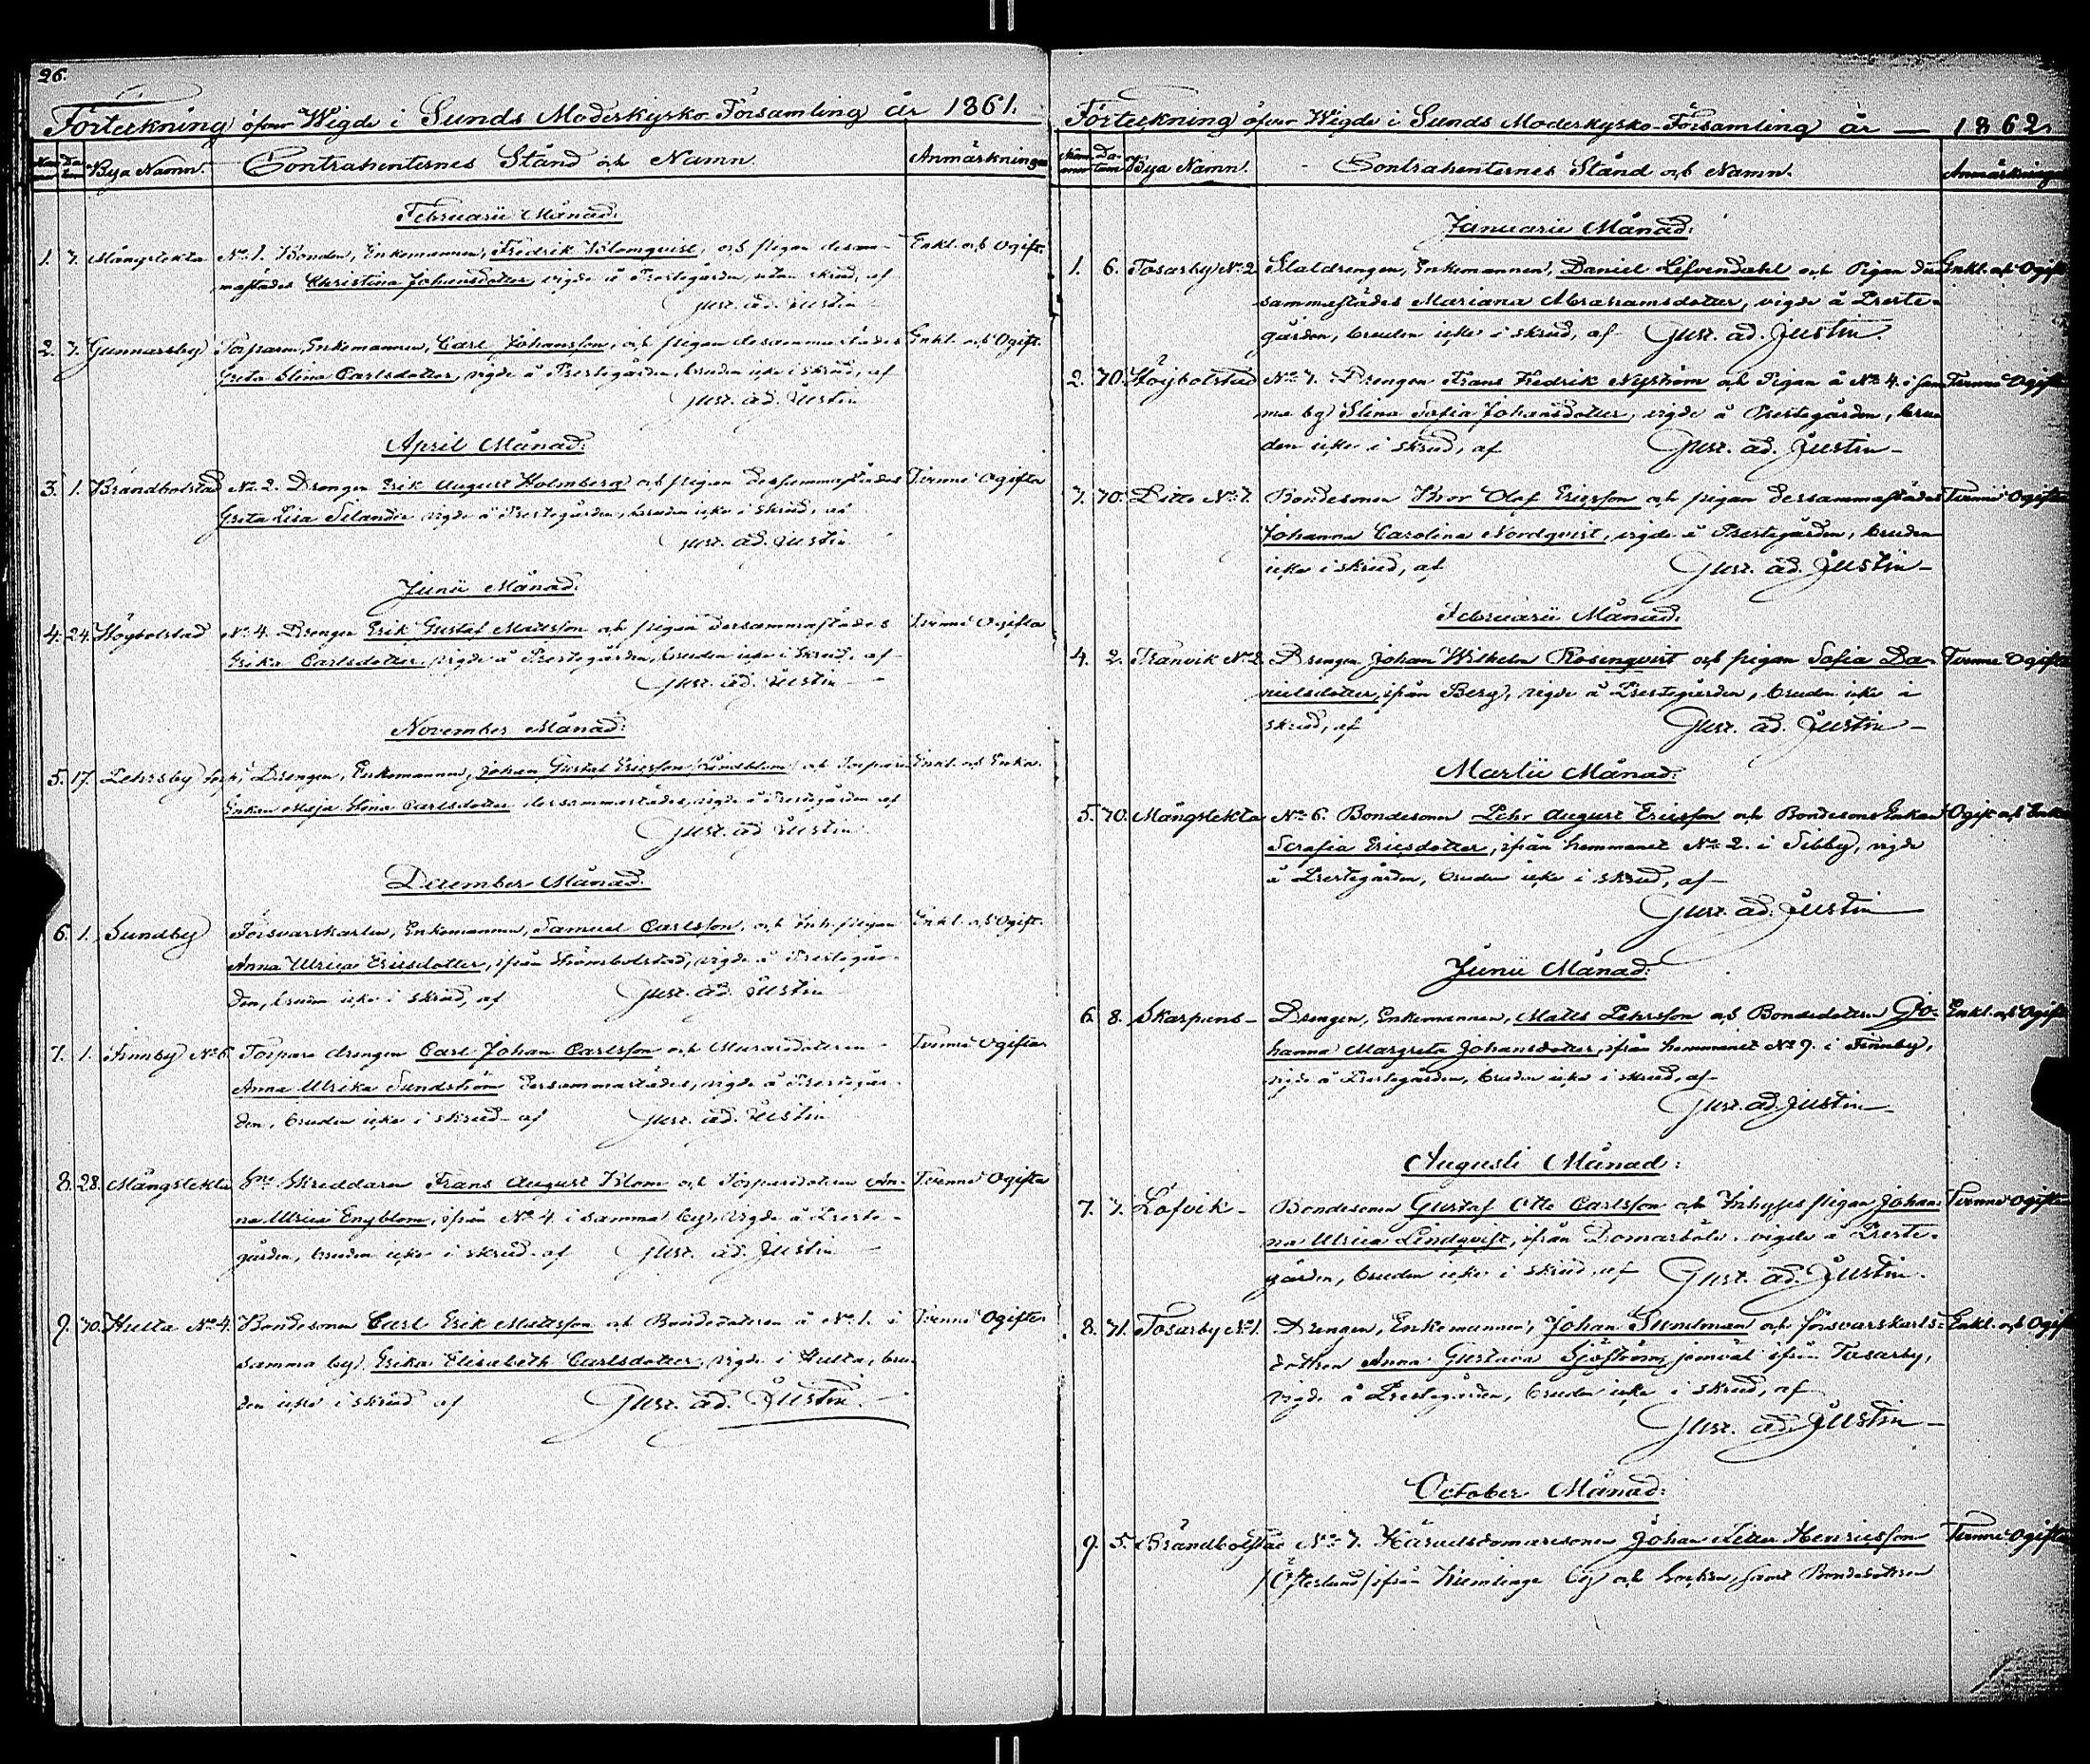 26.
Förteckning öfver Wigde i Sunds Moderkyrko Församling år 1861.
Num mer Da tum Bya Namn. Contrahenternes Stånd och Namn. Anmärkningar
Februarii Månad:
1. 7. Mångstekta No 1. Bonden, Enkemannen, Fredrik Blomqvist, och pigan desam- Enkl. och Ogift.
mastädes Christina Johansdotter, vigde å Prestegården, utan skrud, af
Gust. Ad. Justin
2. 7. Gunnarsby Torparen, Enkemannen, Carl Johansson, och pigan desammastädes Enkl. och Ogift.
Greta Stina Carlsdotter, vigde å Prestegården, bruden icke i skrud, af
Gust. Ad. Justin
April Månad:
3. 1. Brändbolstad No 2. Drengen Erik August Holmberg och pigan dersammastädes Tvenne Ogifta
Greta Lisa Selander vigde å Prestegården, bruden icke i skrud, af
Gust. Ad. Justin
Junii Månad:
4. 24. Högbolstad No 4. Drengen Erik Gustaf Mattsson och pigan dersammastädes Tvenne Ogifta
Erika Carlsdotter, vigde å Prestegården, bruden icke i skrud, af
Gust. Ad. Justin
November Månad:
5. 17. Lehrsby Drengen, Enkemannen, Johan Gustaf Ericsson Lindblom och Torpare Enkl. och Enka.
Enkan Maja Stina Carlsdotter dersammastädes, vigde å Prestegården af
Gust. Ad. Justin
December Månad.
6. 1. Sundby Försvarskarlen, Enkemannen, Samuel Carlsson, och Inh. pigan Enkl. och Ogift.
Anna Ulrica Ericsdotter, ifrån Strömbolstad, vigde å Prestegår-
den, bruden icke i skrud, af Gust. Ad. Justin
7. 1. Finnby No 6 Torpare drengen Carl Johan Carlsson och Muraredottren Tvenne Ogifta
Anna Ulrika Sundström dersammastädes, vigde å Prestegår-
den, bruden icke i skrud af Gust. Ad. Justin
8. 28. Mångstekta Skreddaren Frans August Blom och Torparedottren An- Tvenne Ogifta
na Ulrica Engblom, ifrån No 4. i samma by, vigde å Preste-
gården, bruden icke i skrud af Gust. Ad. Justin
9. 30. Hulta No 4. Bondesonen Carl Erik Mattsson och Bondedottren å No 1. i Tvenne Ogifta
samma by, Erika Elisabeth Carlsdotter, vigde i Hulta, bru-
den icke i skrud af Gust. Ad. Justin.
Förteckning öfver Wigde i Sunds Moderkyrko-Församling år — 1862.
Num mer Da- tum Bya Namn. Contrahenternes Stånd och Namn. Anmärkningar
Januarii Månad:
1. 6. Tosarby No 2 Staldrengen, Enkemannen, Daniel Lefvendahl och Pigan der- Enkl. och Ogift
sammastädes Mariana Abrahamsdotter, vigde å Preste-
gården, bruden icke i skrud, af Gust. Ad. Justin.
2. 30. Högbolstad No 7. Drengen Frans Fredrik Nyström och Pigan å No 4. i sam- Tvenne Ogifta
ma by Stina Sofia Johansdotter, vigde å Prestegården, bru-
den icke i skrud, af Gust. Ad. Justin
3. 30. Ditto No 7. Bondesonen Thor Olof Ericsson och pigan dersammastädes Tvenne Ogifta
Johanna Carolina Nordqvist, vigde å Prestegården, bruden
icke i skrud, af Gust. Ad. Justin
Februarii Månad:
4. 2. Tranvik No 2 Drengen Johan Wilhelm Rosenqvist och pigan Sofia Da- Tvenne Ogifta
nielsdotter, ifrån Berg, vigde å Prestegården, bruden icke i
skrud, af Gust. Ad. Justin
Martii Månad:
5. 30. Mångstekta No 6. Bondesonen Lehr August Ericsson och Bondesons Enkan Ogift och Enka
Serafia Ericsdotter, ifrån hemmanet No 2. i Sibby, vigde
å Prestegården, bruden icke i skrud, af
Gust. Ad. Justin
Junii Månad:
6. 8. Skarpans Drengen, Enkemannen, Matts Lehrsson och Bondedottren Jo- Enkl. och Ogift
hanna Margreta Johansdotter, ifrån hemmanet No 9. i Finnby,
vigde å Prestegården, bruden icke i skrud, af
Gust. Ad. Justin
Augusti Månad:
7. 7. Löfvik Bondesonen Gustaf Otto Carlsson och Inhyses pigan Johan- Tvenne Ogifta
na Ulrica Lindqvist, ifrån Domarböle, vigde å Preste-
gården, bruden icke i skrud, af Gust. Ad. Justin.
8. 31. Tosarby No 1. Drengen, Enkemannen, Johan Sundman och försvarskarls- Enkl. och Ogift
dottren Anna Gustava Sjöström, jemväl ifrån Tosarby,
vigde å Prestegården, bruden icke i skrud, af
Gust. Ad. Justin
October Månad:
9. 5. Brändbolstad No 7. Häradsdomaresonen Johan Petter Henricsson Tvenne Ogifta
/Österlund/ ifrån Kumlinge by och Socken, samt Bondedottren